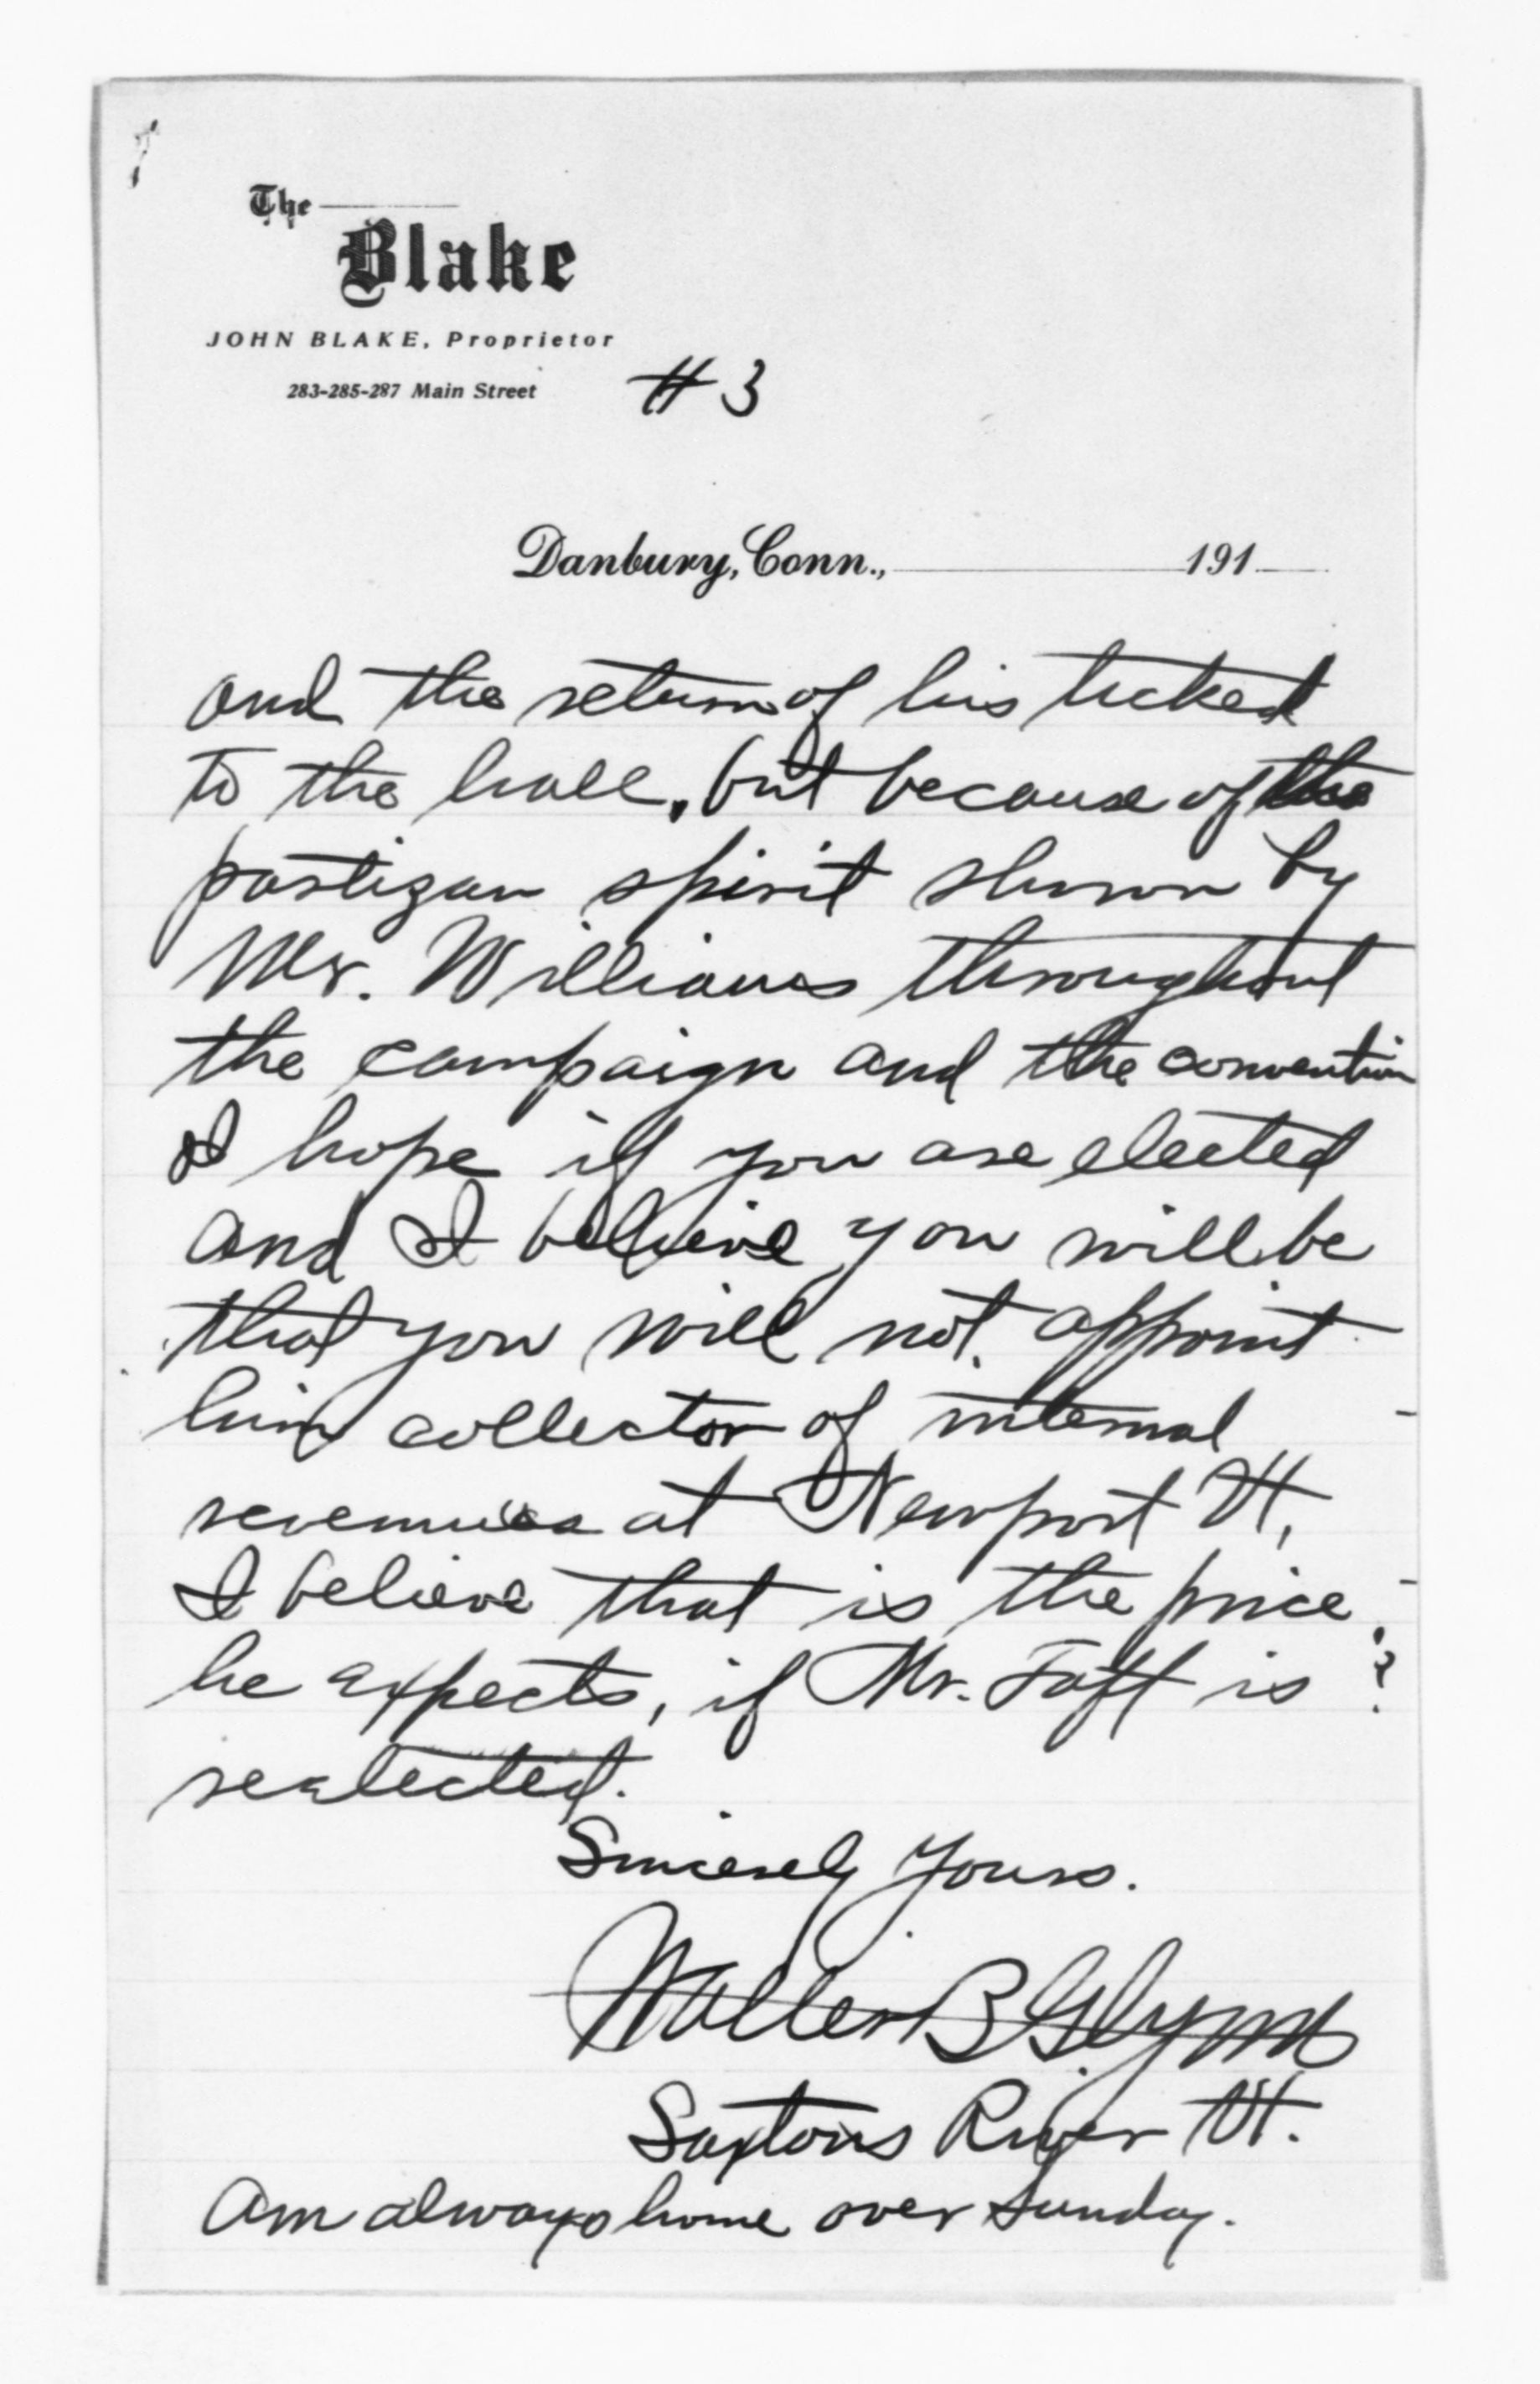 The
Blake
JOHN BLAKE, Proprietor
283-285-287 Main Street
# 3
Danbury, Conn., 191
and the return of his ticket
to the hall, but because of the
partizan spirit shown by
Mr. Williams throughout
the campaign and the convention
I hope if you are elected
and I believe you will be
that you will not appoint
him collector of internal
revenues at Newport Vt,
I believe that is the price
he expects, if Mr. Taft is ?
reelected.
Sincerely Yours.
Walter B Glynn
Saxtons River Vt.
Am always home over Sunday.